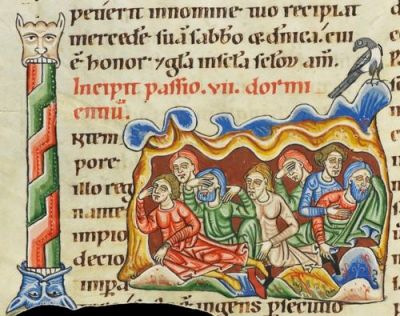 petierit innomine tuo recipiat
mercedē suā dnica. cui
ē honor & gła inscła sclōꝝ am̄.
Incipit passio .vii. dormi
entiū.
IN tem
pore
illo reg
nante
impio
decio
impa ingens psecutio